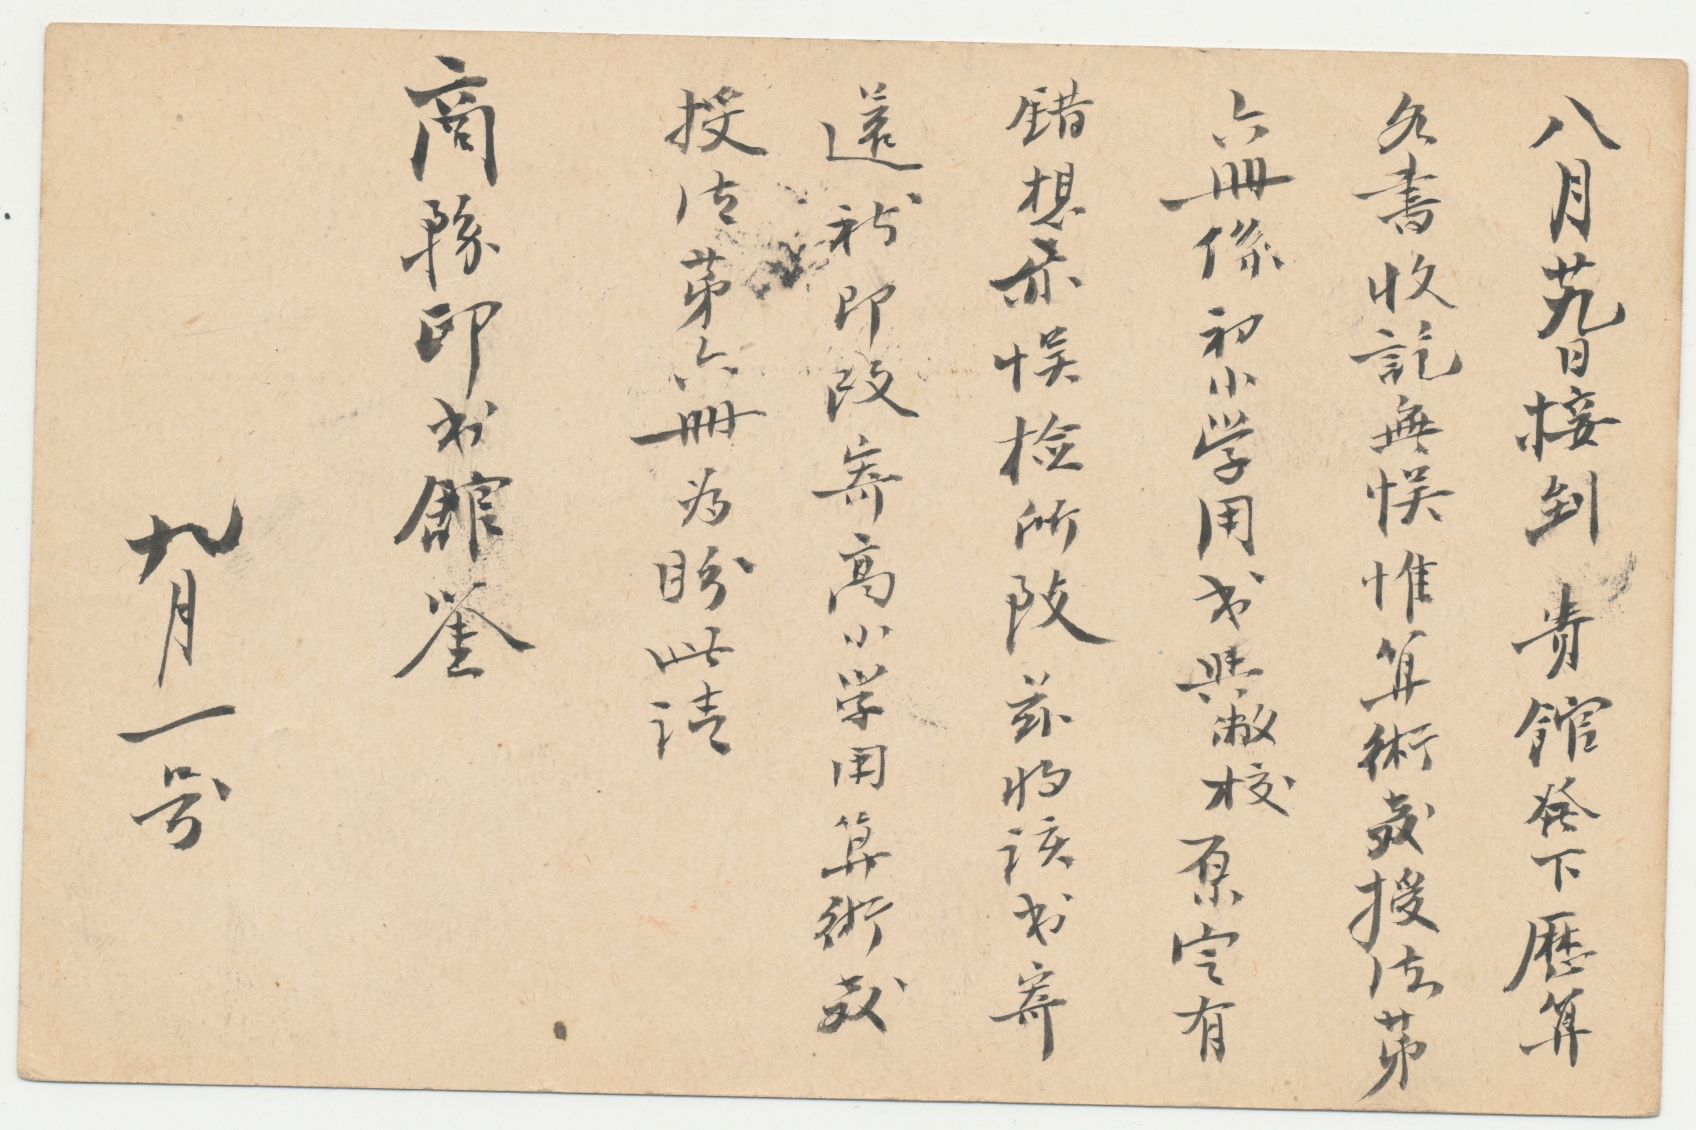 八月廿九日接到貴館發下歷算
各書收訖無悮惟算術教授法第
六冊係初小学用书與敝校原定有
錯想亦悮檢所致茲將该书寄
還祈即改寄高小学用算術教
授法第六冊为盼此请
商務印书館鉴
九月一号